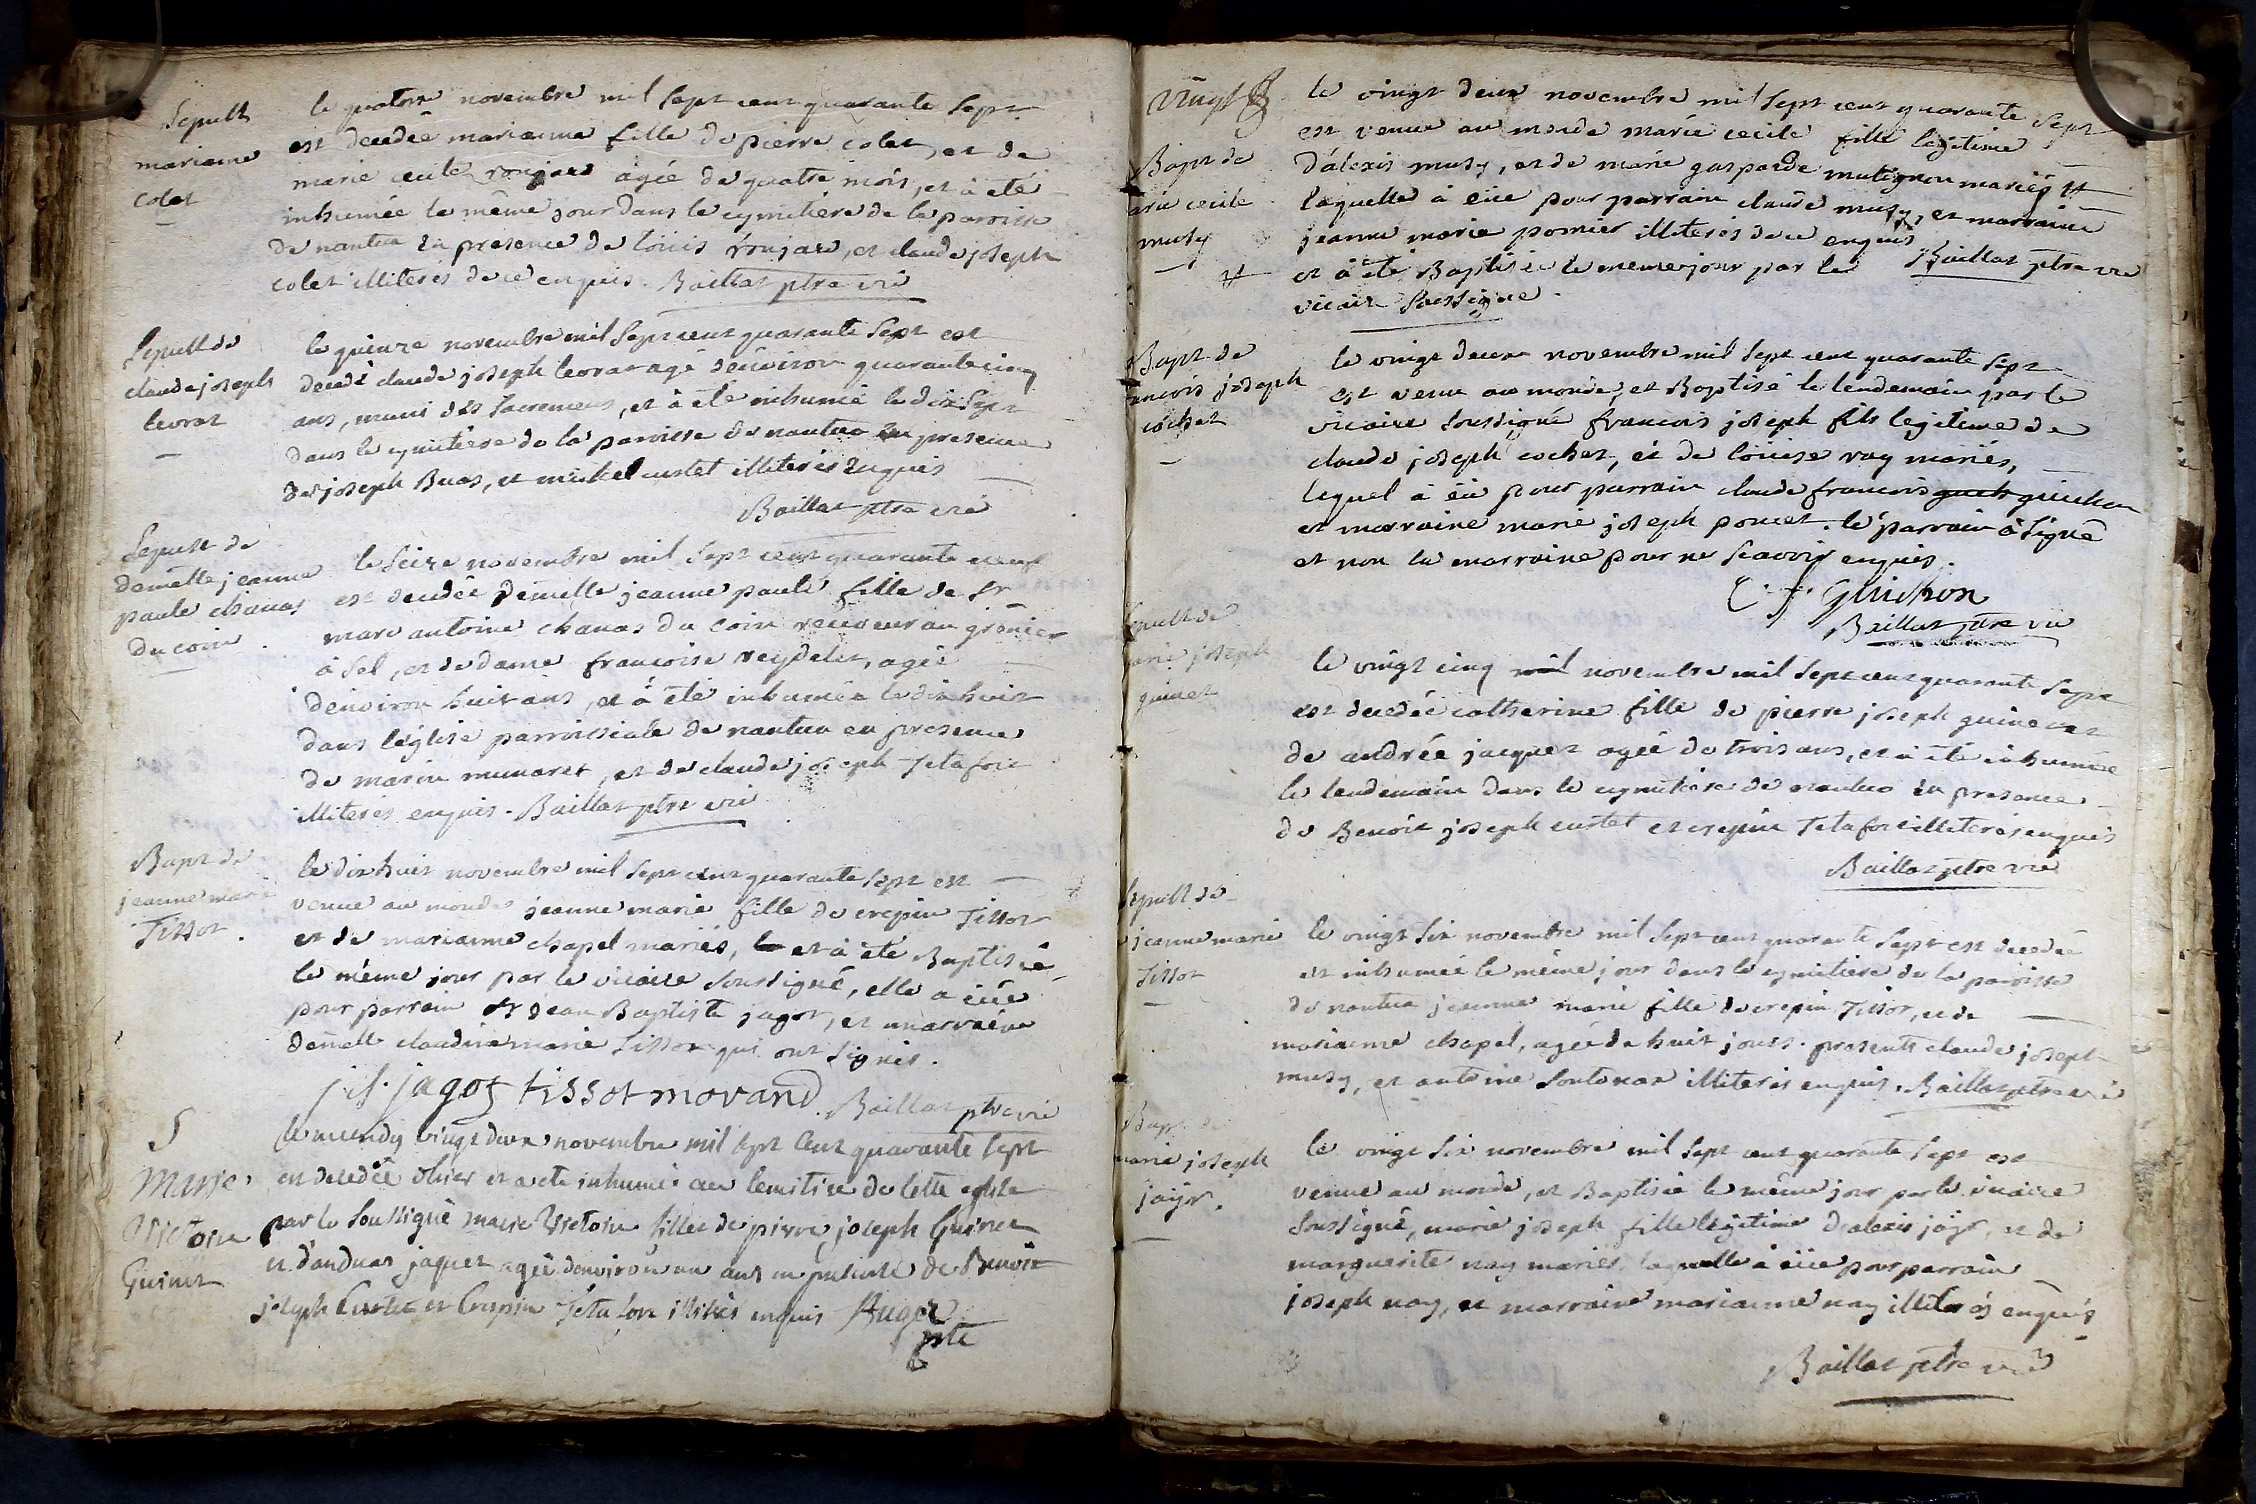 Sepult
mariane
colet
le quatorze novembre mil sept cent quarante sept
est decedée marianne fille de pierre colet, et de
marie cecile roujard agée de quatre mois, et à été
inhumée le même jour dans le cymitière de la paroisse
de nantua en presence de loüis roujard, et claude joseph
colet illiterés de ce enquis. Baillat ptre vié
Sepult de
claude joseph
levrat
le quinze novembre mil sept cent quarante sept est
decedé claude joseph levrat agé denviron quarante cinq
ans, muni des sacremens, et à été inhumé le dix sept
dans le cymitière de la paroisse de nantua en presence
de joseph Buas, et michel custet illiterés enquis
Baillat ptre vié
Sepult de
demelle jeanne
paule chanas
du coin
le seize novembre mil sept cent quarante neuf
est decedée Demelle jeanne paule fille de Sr
marc antoine chanas du coin receveur au grenier
à sel, et de dame francoise reydelet, agée
denviron huit ans, et à été inhumée le dix huit
dans léglise parroissiale de nantua en presence
de marin munaret, et de claude joseph Tetafort
illiterés enquis. Baillat ptre vié
Bapt de
jeanne marie
Tissot
le dix huit novembre mil sept cent quarante sept est
venue au monde jeanne marie fille de crepin Tissot
et de marianne chapel mariés, la et à été Baptisée
le même jour par le vicaire soussigné, elle a eüe
pour parrain Sr jean Baptiste jagot, et marraine
demelle claudine marie Tissot qui ont signés.
j. b. jagot tissot morand Baillat ptre vié
S
Marie
Victoire
Guinet
le mercredy vingt deux novembre mil sept cent quarante sept
est decedée et a eté inhumée au cemitire de cette eglise
par le soussigné marie Victoire fille de pierre joseph Guinet
et d'andrée jaquet agée denviron un ans en presence de Benoit
joseph Curtet et Crespin Teta fort illitrés enquis Auger
ptre
Vingt
Bapt de
arie cecile
musy
le vingt deux novembre mil sept cent quarante sept
est venue au monde marie cecile fille legitime
d'alexis musy, et de marie gasparde mutignon mariés #
laquelle à eüe pour parrain claude musy, et marraine
jeanne marie pomier illiterés de ce enquis Baillat ptre vié
# et à été Baptisée le meme jour par le
vicaire soussigné.
Bapt de
ancois joseph
cochet
le vingt deux novembre mil sept cent quarante sept
est venu au monde, et Baptisé le lendemain par le
vicaire soussigné francois joseph fils legitime de
claude joseph cochet, et de loüise ray mariés,
lequel à eü pour parrain claude francois guich guichon
et marraine marie joseph poncet. le parrain à signé
et non la marraine pour ne scavoir enquis.
C. f. Guichon
Baillat ptre vié
Sepult de
marie joseph
guinet
le vingt cinq mil novembre mil sept cent quarante sept
est decedée catherine fille de pierre joseph guinet et
de andrée jacquet agée de trois ans, et à été inhumée
le lendemain dans le cymitière de nantua en presence
de Benoit joseph custet et crepin Tetafort illiterés enquis
Baillat ptre vié
Sepult de
jeanne marie
Tissot
le vingt six novembre mil sept cent quarante sept est decedée
et inhumée le même jour dans le cymitiere de la paroisse
de nantua jeanne marie fille de crepin Tissot, et de
marianne chapel, agée de huit jours. presents claude joseph
musy, et antoine soutonax illiterés enquis. Baillat ptre vié
Bapt de
marie joseph
jaijr.
le vingt six novembre mil sept cent quarante sept est
venue au monde, et Baptisée le même jour par le vicaire
soussigné, marie joseph fille legitime d'alexis jaijr, et de
marguerite nay mariés, laquelle à eüe pour parrain
joseph nay, et marraine marianne nay illiterés enquis
Baillat ptre vié